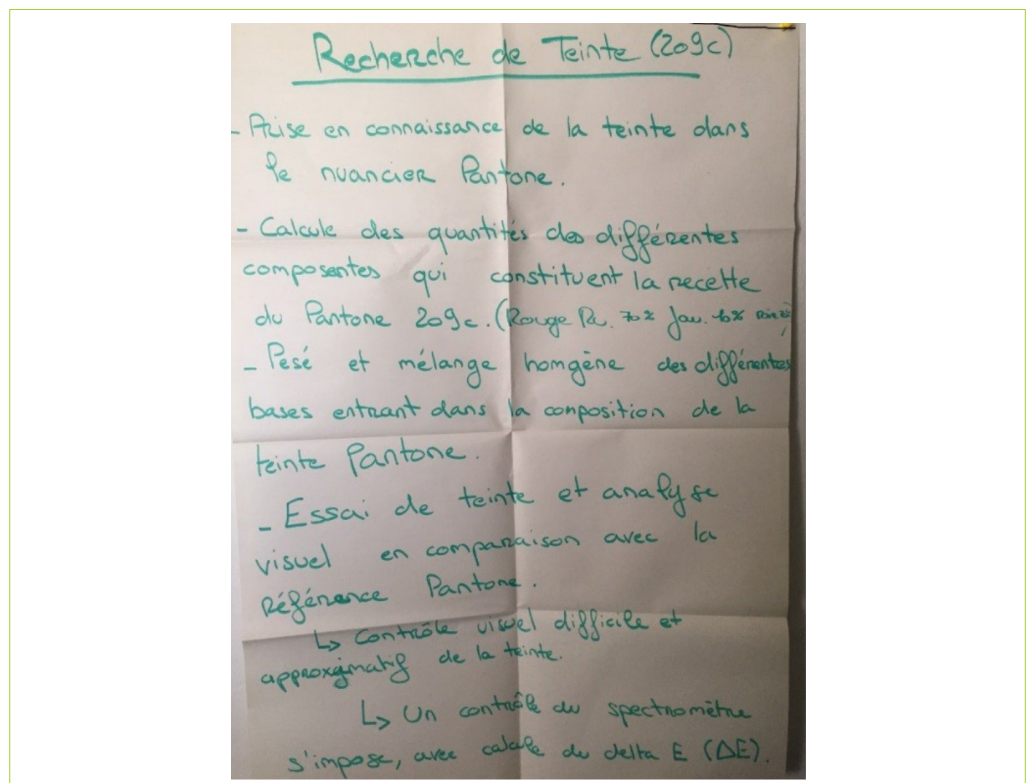 Recherche de Teinte (209c)
- Prise en connaissance de la teinte dans
le nuancier Pantone.
- Calcule des quantités des différentes
composentes qui constituent la recette
du Pantone 209c. (Rouge Ru. 70% Jau. 10%
- Pesé et mélange homgène des différentes
bases entrant dans la composition de la
teinte Pantone.
- Essai de teinte et analyse
visuel en comparaison avec la
Référence Pantone.
↳ Contrôle visuel difficile et
approximatif de la teinte.
↳ Un contrôle du spectromètre
s'impose, avec calcule du delta E (ΔE).